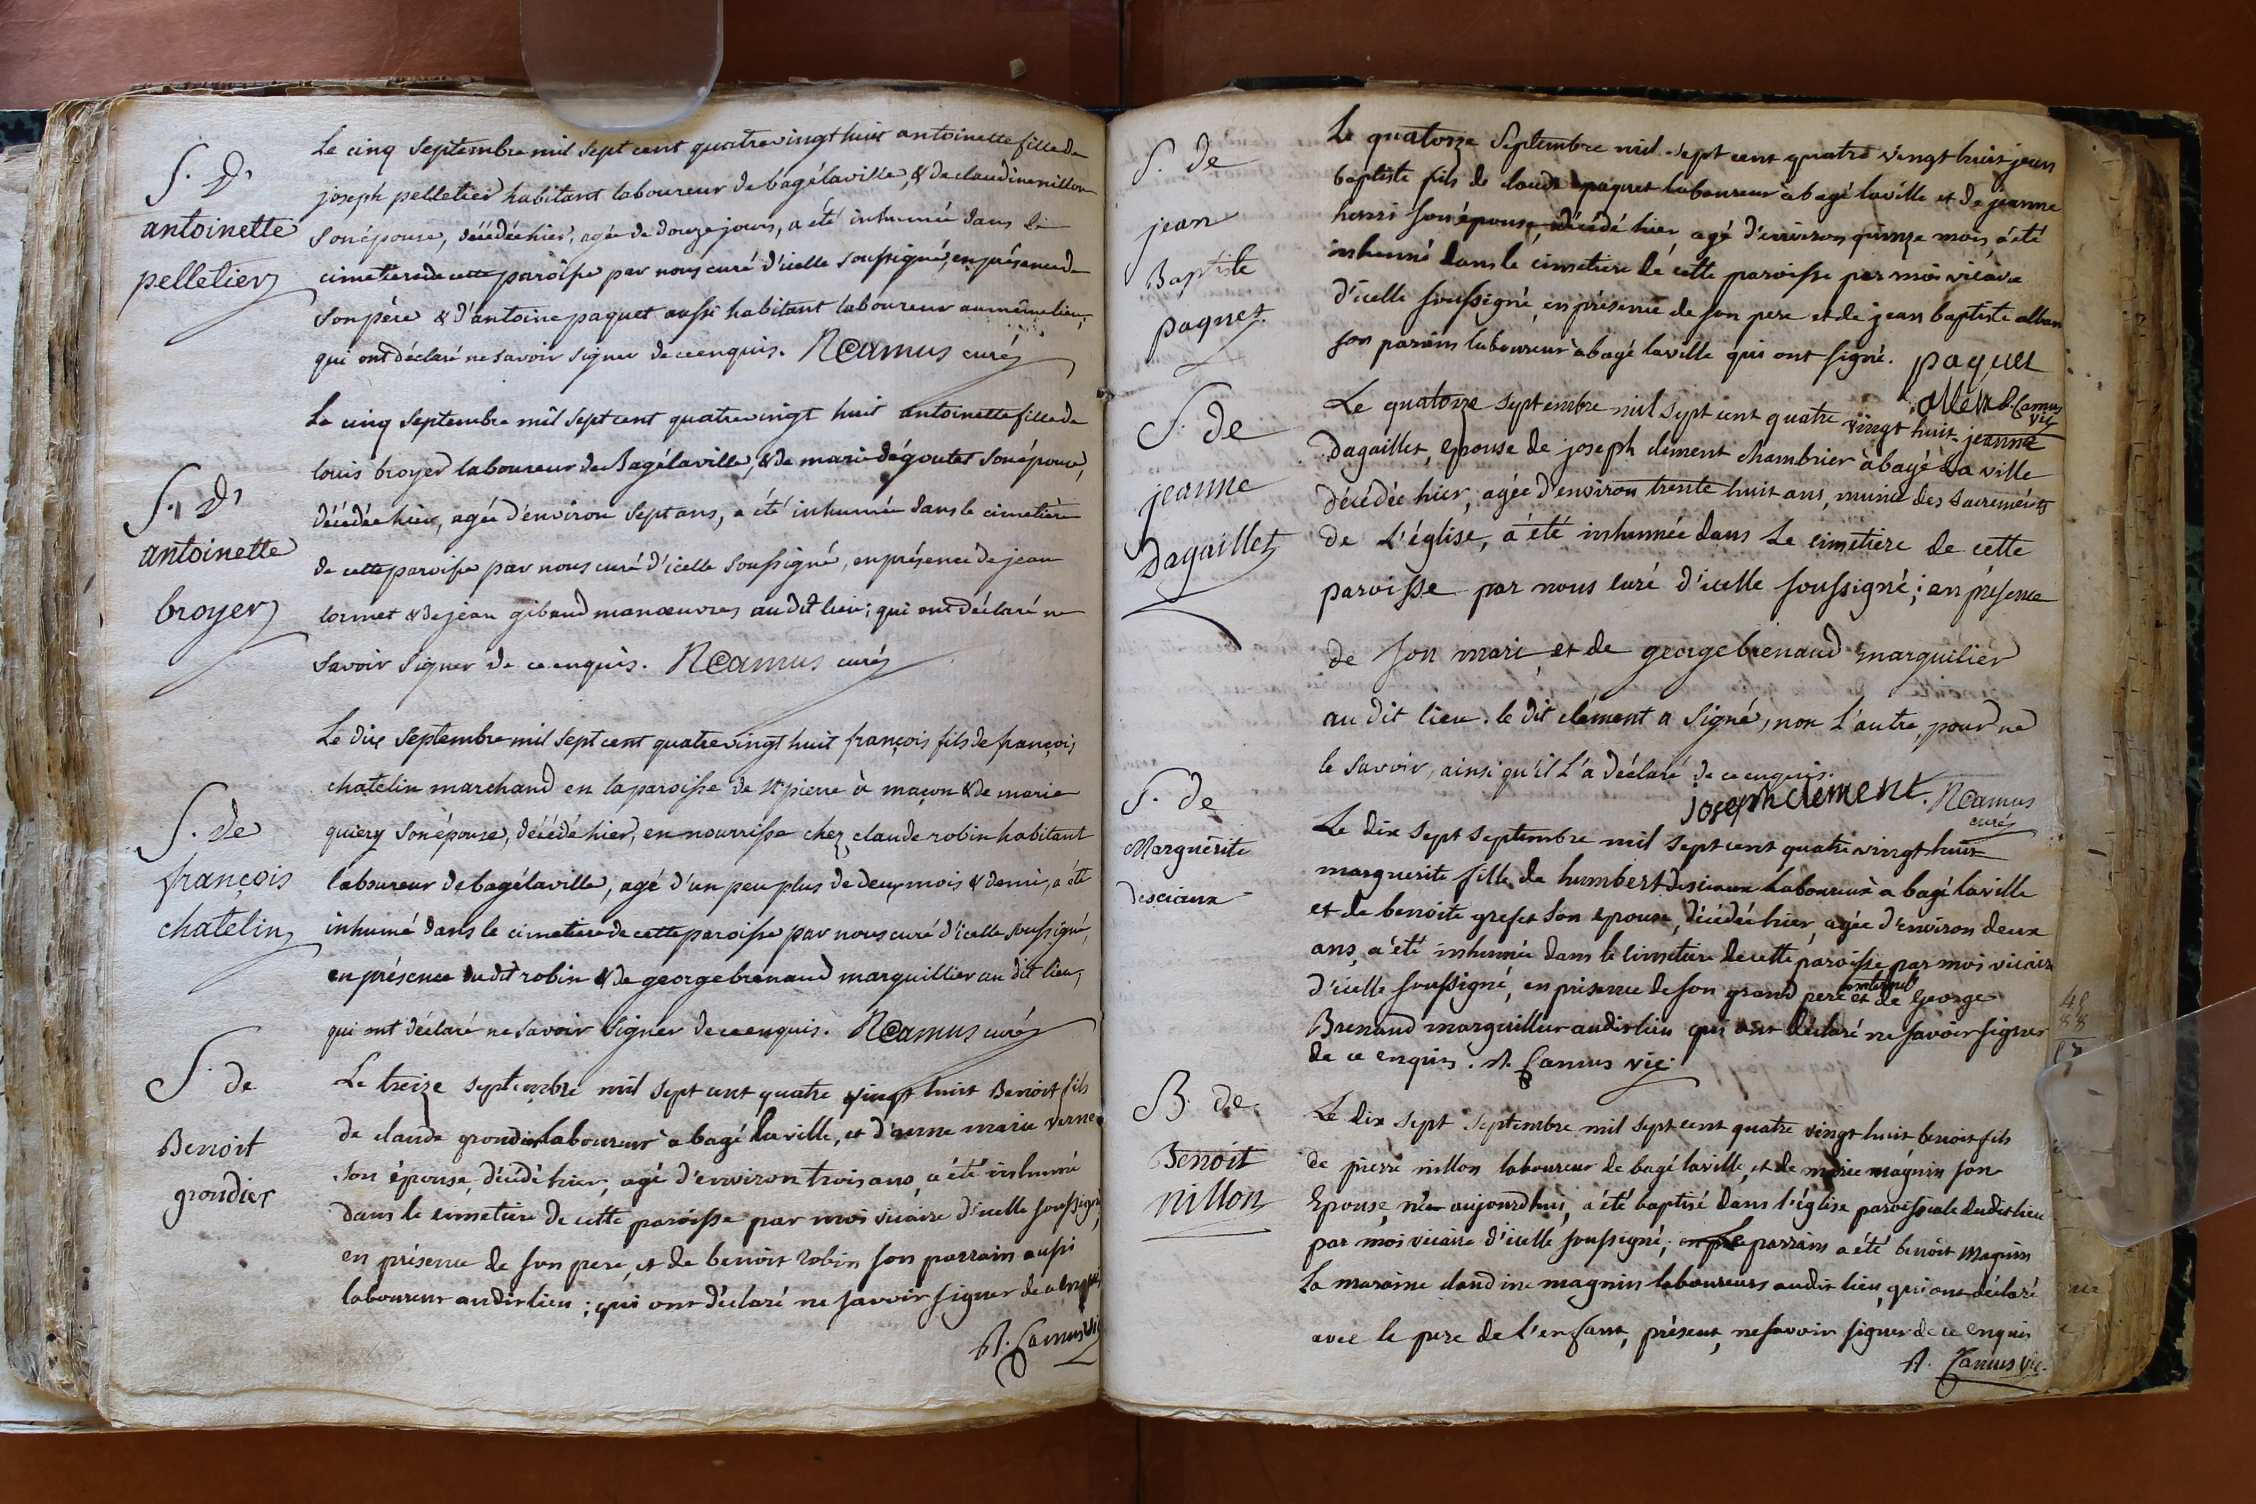 S. D'
antoinette
pelletier
Le cinq Septembre mil sept cent quatre vingt huit antoinette fille de
joseph pelletier habitant laboureur de bagélaville, & de claudine nillon
son épouse, décédée hier, agée de douze jours, a été inhumée dans le
cimetiere de cette paroisse par nous curé d'icelle soussigné, en présence de
son père & d'antoine paquet aussi habitant laboureur au même lieu,
qui ont déclaré ne savoir signer de ce enquis. N Camus curé
S. D'
antoinette
broyer
Le cinq septembre mil sept cent quatre vingt huit antoinette fille de
louis broyer laboureur de Bagélaville, & de marie dégoutet son épouse,
décédée hier, agée d'environ sept ans, a été inhumée dans le cimetière
de cette paroisse par nous curé d'icelle soussigné, en présence de jean
cormet & de jean gibaud manœuvres au dit lieu; qui ont déclaré ne
savoir signer de ce enquis. N Camus curé
S. de
françois
chatelin
Le dix septembre mil sept cent quatre vingt huit françois fils de françois
chatelin marchand en la paroisse de St pierre à macon & de marie
quiery son épouse, décédé hier, en nourrisse chez claude robin habitant
laboureur de bagélaville, agé d'un peu plus de deux mois & demi, a été
inhumé dans le cimetiere de cette paroisse par nous curé d'icelle soussigné,
en présence du dit robin & de george brenaud marguillier au dit lieu,
qui ont déclaré ne savoir signer de ce enquis. N Camus curé
S. de
Benoit
grondier
Le treize septembre mil sept cent quatre vingt huit Benoit fils
de claude grondier laboureur à bagé la ville, et d'anne marie verne
son épouse, décédé hier, agé d'environ trois ans, a été inhumé
dans le cimetiere de cette paroisse par moi vicaire d'icelle soussigné,
en présence de son pere, et de benoit robin son parrain aussi
laboureur audit lieu; qui ont déclaré ne savoir signer de ce enquis
A. Camus vic
S. de
jean
Baptiste
paquet
Le quatorze Septembre mil sept cent quatre vingt huit jean
baptiste fils de claude paquet laboureur à bagé la ville et de jeanne
henri son épouse, décédé hier agé d'environ quinze mois, a été
inhumé dans le cimetiere de cette paroisse par moi vicaire
d'icelle soussigné, en présence de son pere et de jean baptiste alban
son parain laboureur à bagé laville qui ont signé. paquet
Camus
vic
S. de
jeanne
Dagaillet
Le quatorze septembre mil sept cent quatre vingt huit jeanne
Dagaillet, epouse de joseph clement chambrier à bagé La ville
décédée hier, agée d'environ trente huit ans, munie des sacrements
de L'église, a été inhumée dans Le cimetiere de cette
paroisse par nous curé d'icelle soussigné; en présence
de son mari et de george brenaud marguilier
au dit lieu. le dit clément a signé, non L'autre, pour ne
le savoir, ainsi qu'il L'a déclaré de ce enquis.
joseph clement. N Camus
curé
S. de
Marguerite
desciaux
Le dix sept septembre mil sept cent quatre vingt huit
marguerite fille de humbert desciaux laboureur à bagé laville
et de benoite grefet son epouse, décédée hier, agée d'environ deux
ans, a été inhumée dans le cimetiere de cette paroisse par moi vicaire
d'icelle soussigné, en présence de son grand pere maternel et de George
Brenaud marguillier audit lieu qui ont déclaré ne savoir signer
de ce enquis. A. Camus vic.
B. de
Benoit
nillon
Le dix sept septembre mil sept cent quatre vingt huit benoit fils
de pierre nillon laboureur de bagé laville, et de marie magnin son
Epouse, né aujourdhui, a été baptisé dans l'église paroissiale dudit lieu
par moi vicaire d'icelle soussigné; Le parrain a été benoit magnin
La maraine claudine magnin laboureurs audit lieu, qui ont déclaré
avec le pere de l'enfant, présent, ne savoir signer de ce enquis
A. Camus vic.